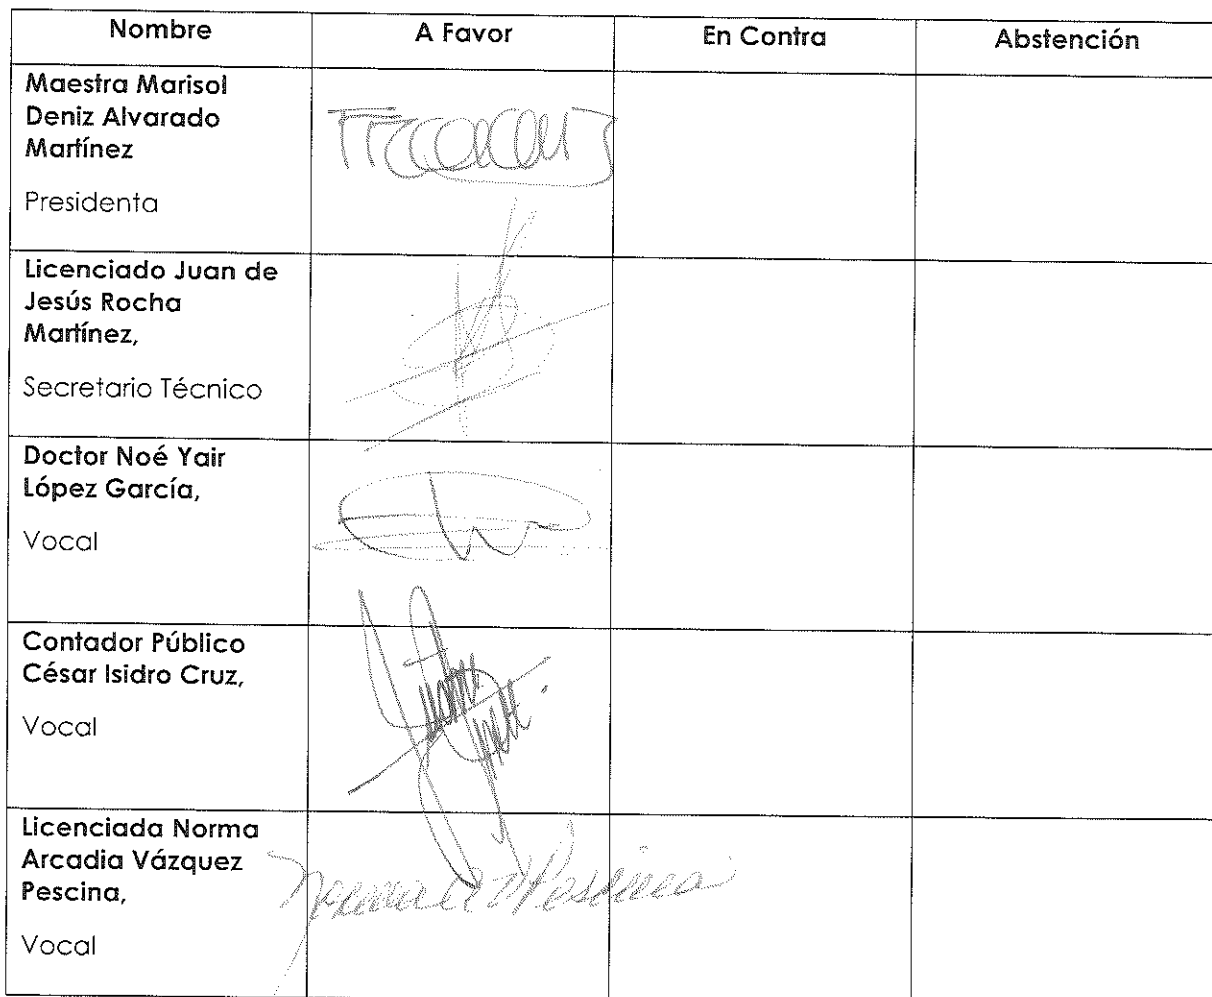 Nombre A Favor En Contra Abstención
Maestra Marisol
Deniz Alvarado
Martínez
Presidenta
Licenciado Juan de
Jesús Rocha
Martínez,
Secretario Técnico
Doctor Noé Yair
López García,
Vocal
Contador Público
César Isidro Cruz,
Vocal
Licenciada Norma
Arcadia Vázquez
Pescina,
Vocal
Norma A Pescina